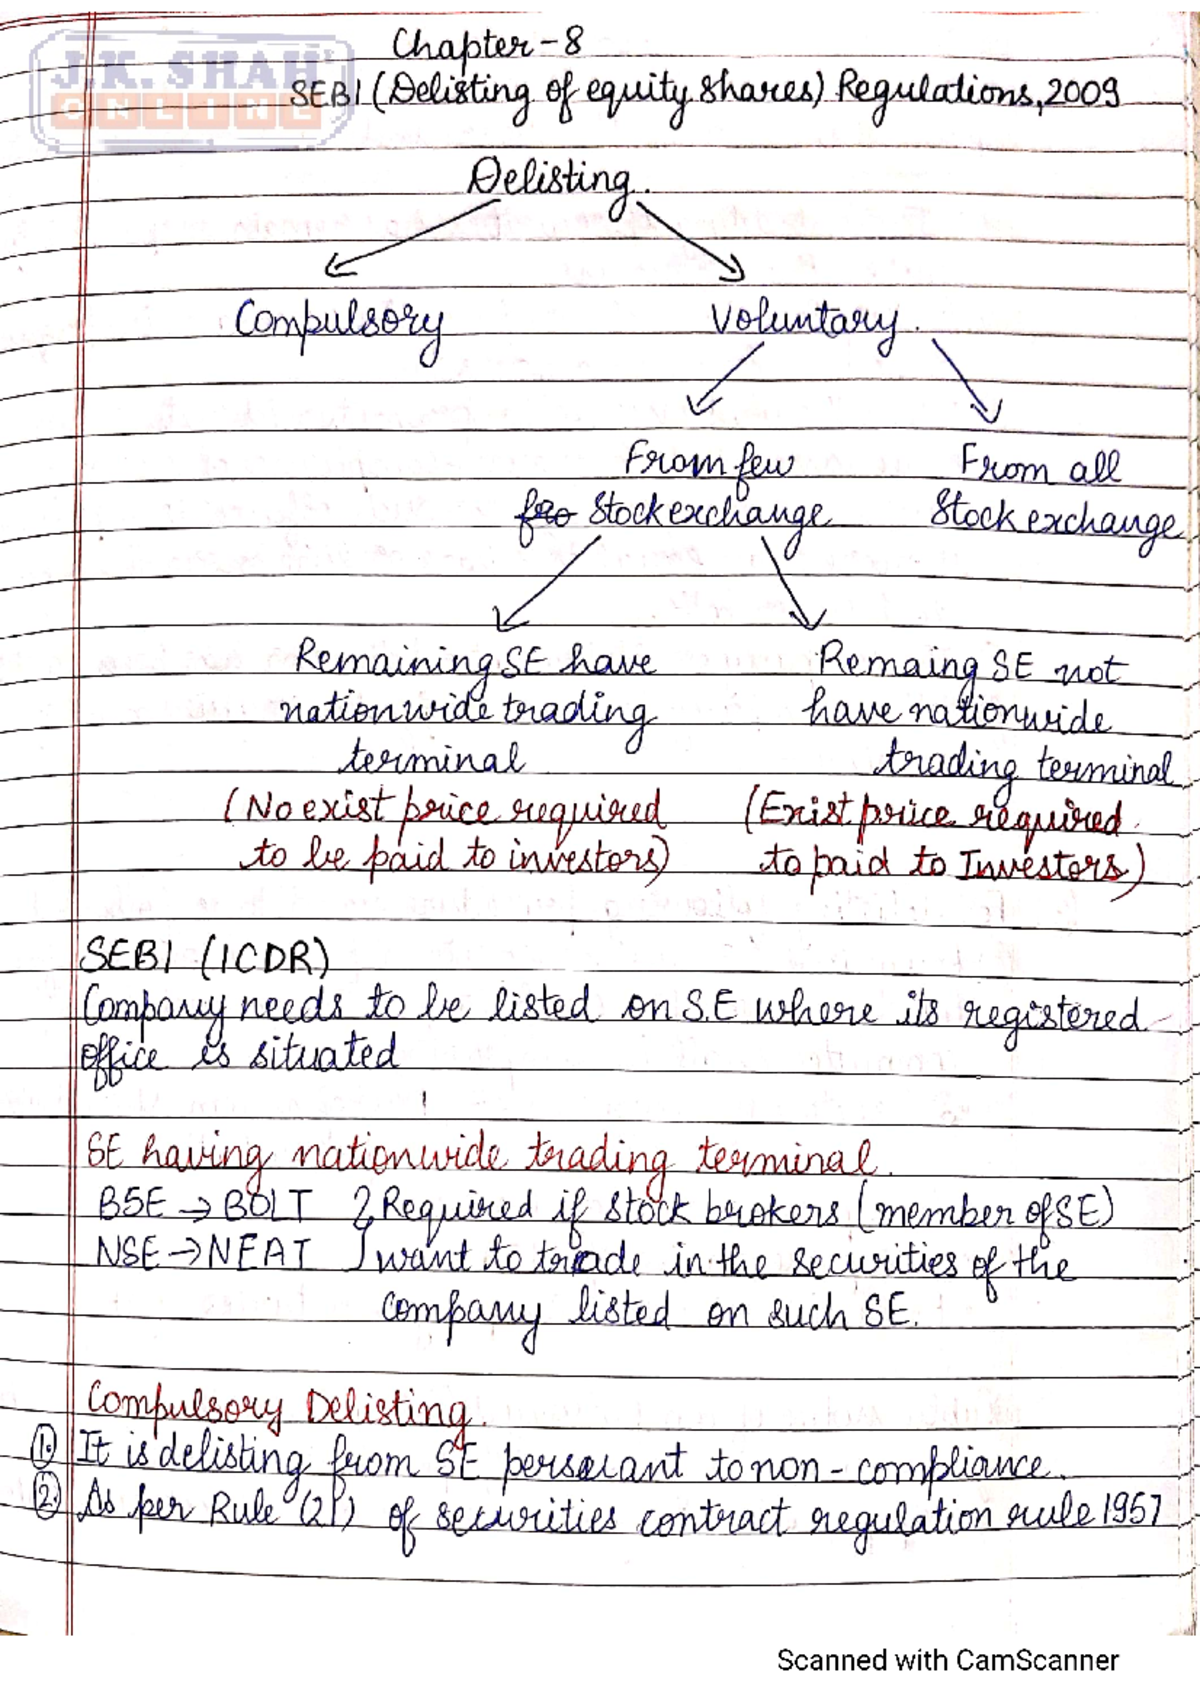 J.K. SHAH
ONLINE
Chapter-8
SEBI (Delisting of equity shares) Regulations, 2009
Delisting.
Compulsory Voluntary.
From few From all
fro Stock exchange Stock exchange
Remaining SE have Remaing SE not
nationwide trading have nationwide
terminal trading terminal
(No exist price required (Exist price required
to be paid to investors) to paid to Investors)
SEBI (ICDR)
Company needs to be listed on S.E where its registered
office is situated
SE having nationwide trading terminal.
BSE → BOLT } Required if stock brokers (member of SE)
NSE → NEAT want to trade in the securities of the
company listed on such SE.
Compulsory Delisting.
1. It is delisting from SE persuant to non-compliance.
2. As per Rule (21) of securities contract regulation rule 1957
Scanned with CamScanner